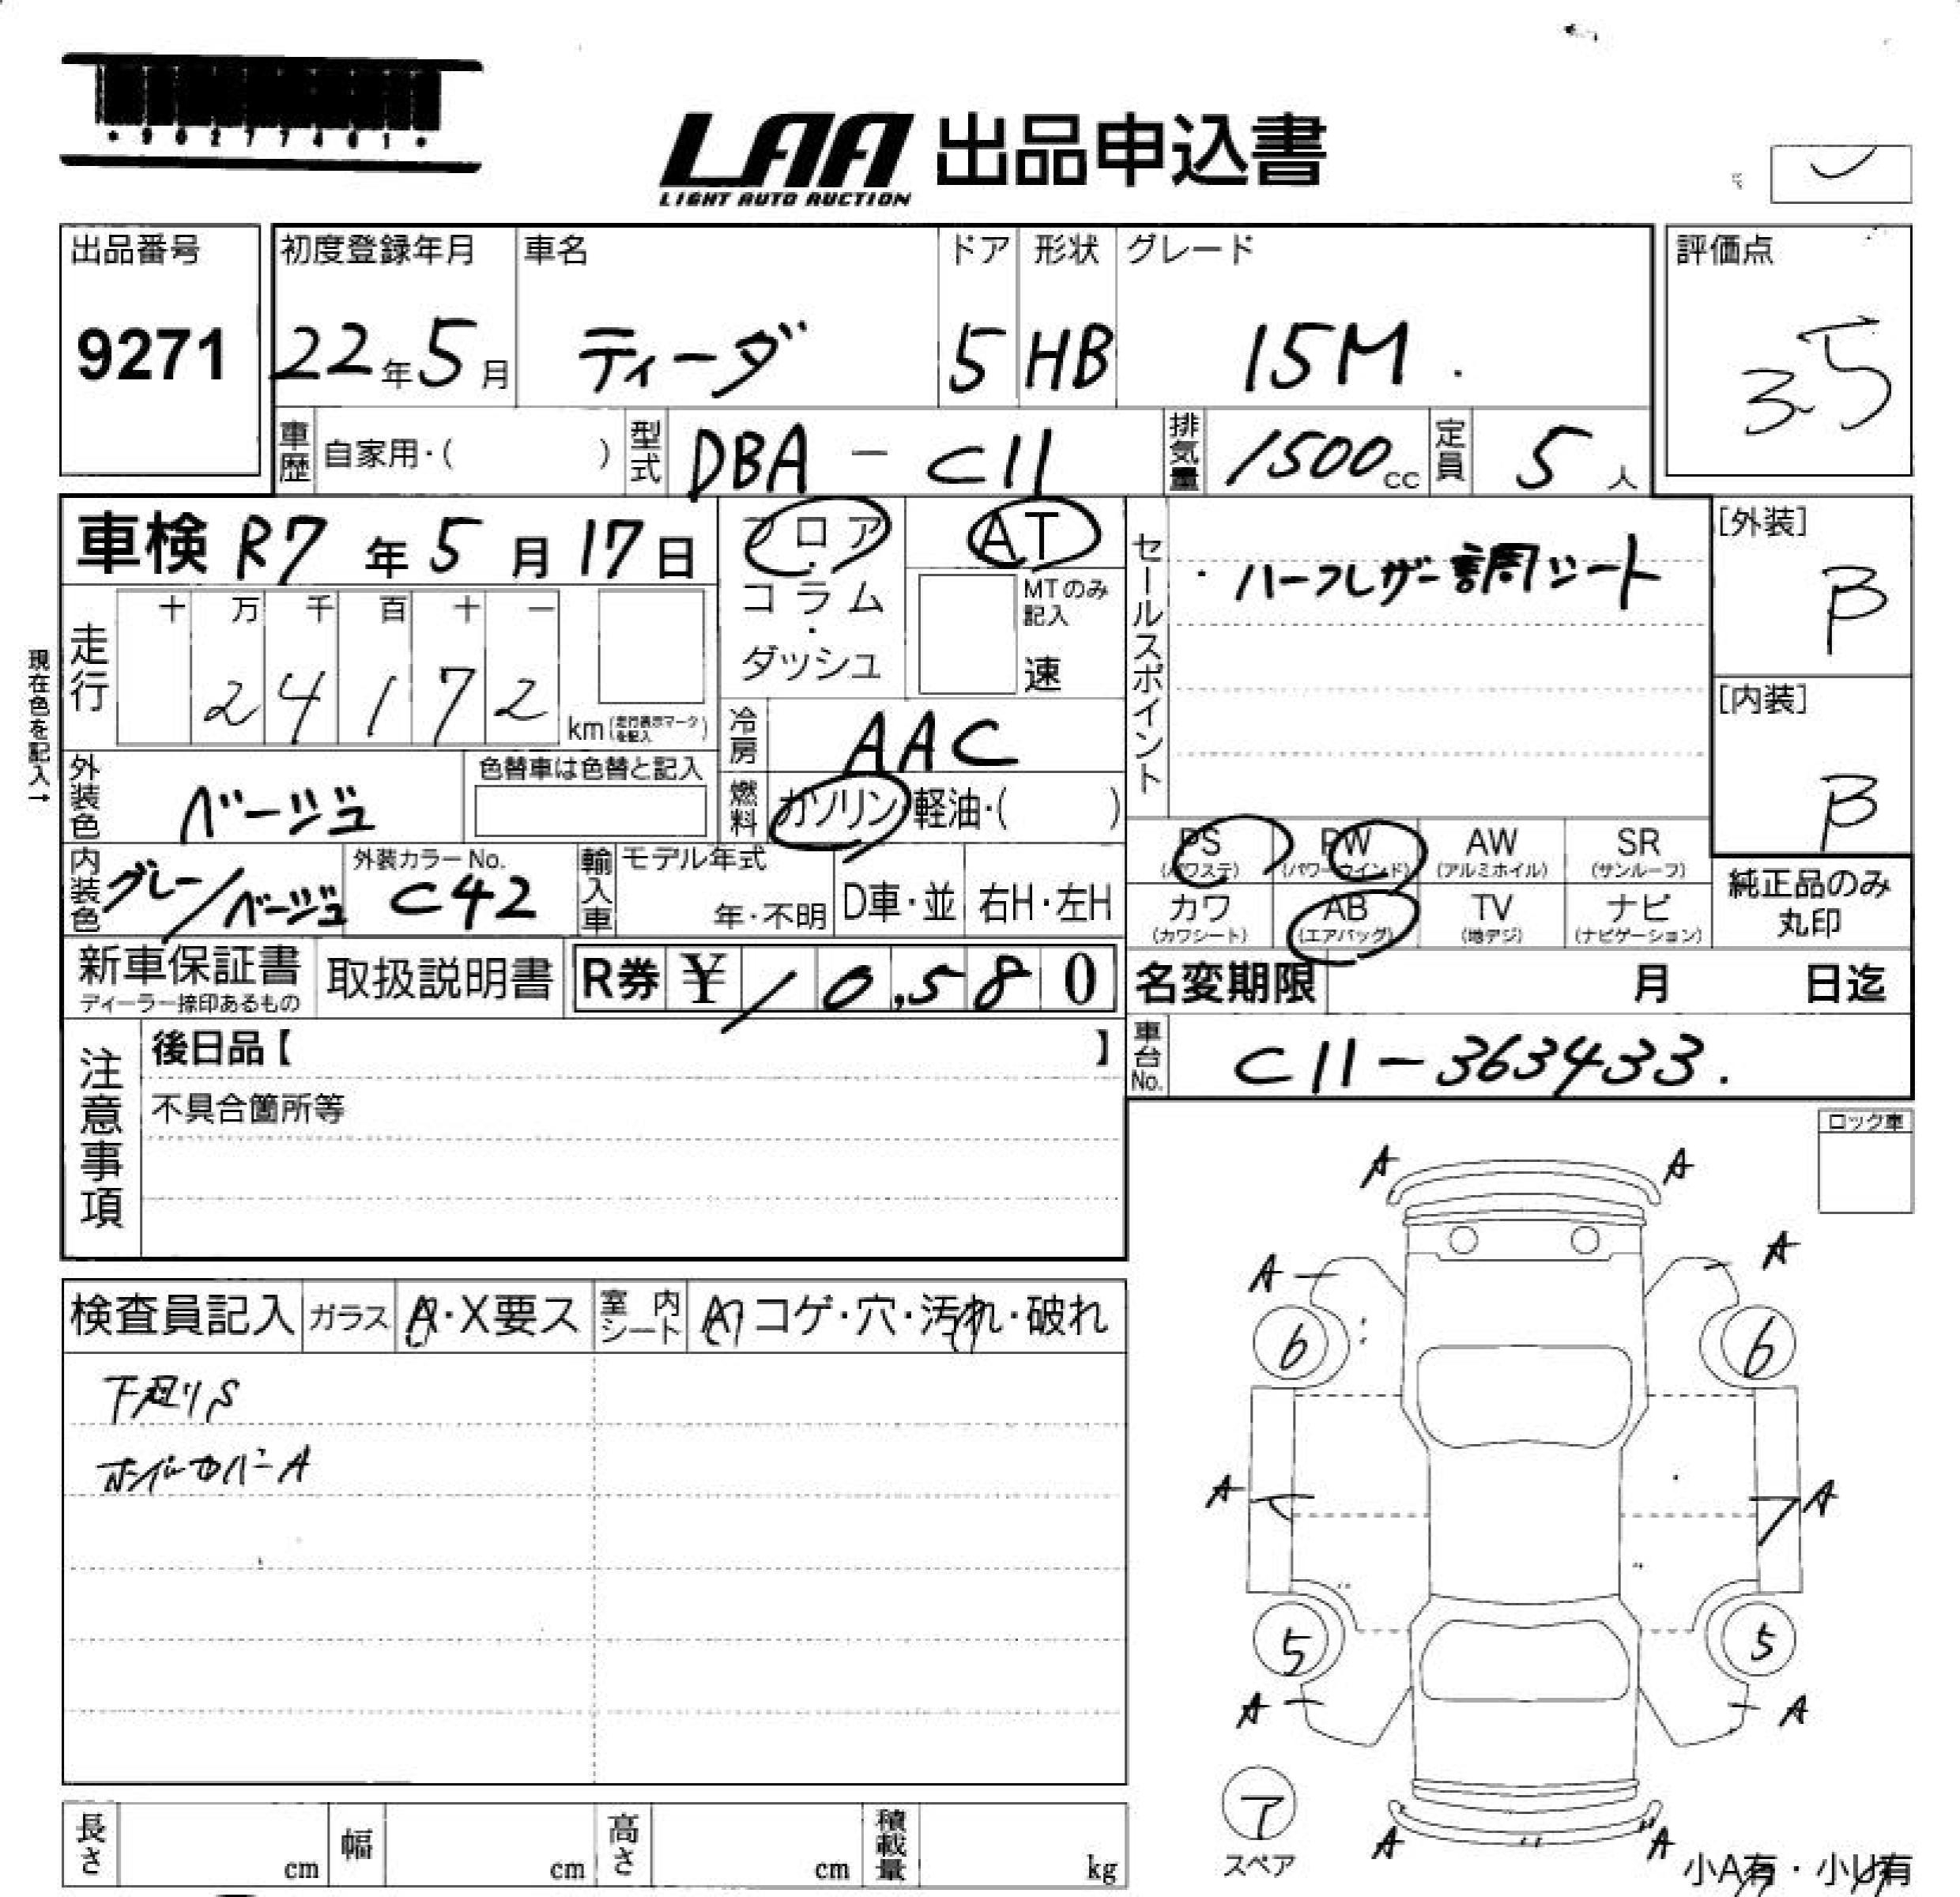 *90277461*
LAA 出品申込書
LIGHT AUTO AUCTION
出品番号 9271
初度登録年月 22年5月
車名 ティーダ
ドア 5
形状 HB
グレード 15M.
評価点 3.5
車歴 自家用・( )
型式 DBA-C11
排気量 1500cc
定員 5人
車検 R7年5月17日
フロア
コラム
・
ダッシュ
AT
MTのみ記入
速
セールスポイント
・ハーフレザー調シート
[外装] B
[内装] B
現在色を記入→
走行 十 万 千 百 十 一
2 4 1 7 2
km(走行表示マークを記入)
冷房 AAC
外装色 ベージュ
色替車は色替と記入
燃料 ガソリン 軽油・( )
内装色 グレー/ベージュ
外装カラーNo. C42
輸入車 モデル年式
年・不明 D車・並 右H・左H
PS (パワステ)
PW (パワーウインド)
AW (アルミホイル)
SR (サンルーフ)
カワ (カワシート)
AB (エアバッグ)
TV (地デジ)
ナビ (ナビゲーション)
純正品のみ丸印
新車保証書
ディーラー捺印あるもの
取扱説明書
R券 ¥10,580
名変期限 月 日迄
車台No. C11-363433.
注意事項
後日品【 】
不具合箇所等
ロック車
検査員記入 ガラス A・X要ス 室内シート コゲ・穴・汚れ・破れ
下廻りS
ホイールカバーA
A A
A A
6 6
A A
5 5
A A
ア
スペア
A A
小A有・小U有
長さ cm 幅 cm 高さ cm 積載量 kg